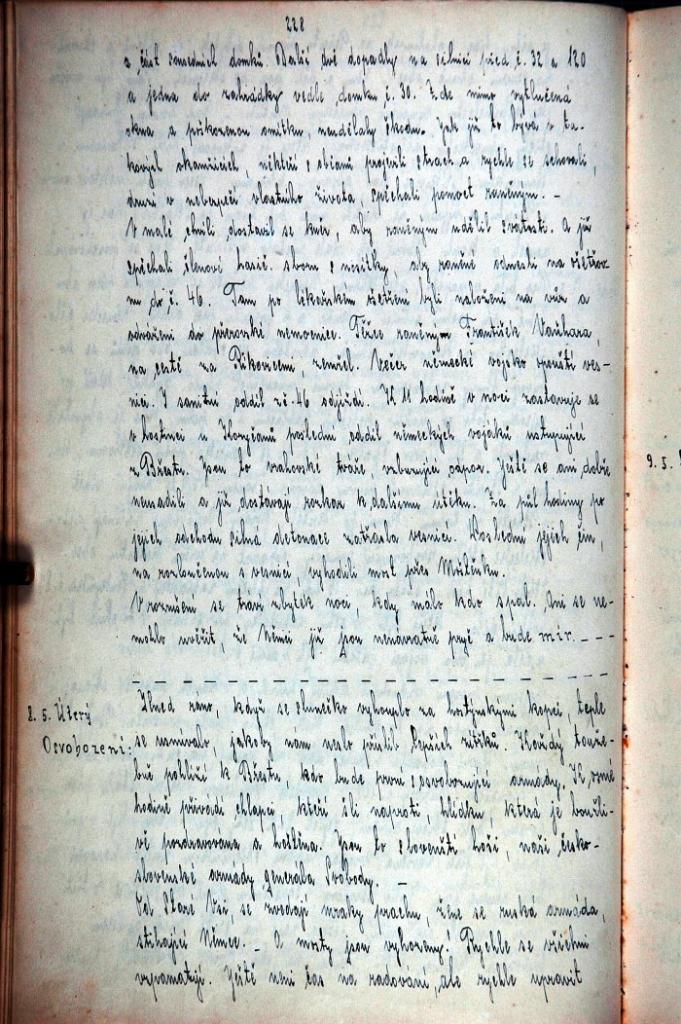 228
a část sousedních domků. Další dvě dopadly na silnici před č. 32 a 120
a jedna do zahrádky vedle domku č. 30. Zde mimo vytlučená
okna a poškozenou omítku, neudělaly škodu. Jak již to bývá v ta-
kových okamžicích, někteří s občanů projevili strach a rychle se schovali,
druzí v nebezpečí vlastního života, spěchali pomoct raněným. -
V malé chvíli dostavil se kněz, aby raněným udělil svátosti. A již
spěchali členové hasič. sboru s nosítky, aby raněné odnesli na ošetřov-
nu do č. 46. Tam po lékařském ošetření byli naloženi na vůz a
odváženi do přerovské nemocnice. Těžce raněným František Vaňhara,
na cestě za Říkovicemi, zemřel. Večer německé vojsko opouští ves-
nici. I sanitní oddíl z č. 46 odjíždí. K 11 hodině v noci zastavuje se
v hostinci u Horyčanů poslední oddíl německých vojáků ustupující
z Břestu. Jsou to vrahovské tváře vzbuzující odpor. Ještě se ani dobře
neusadili a již dostávají rozkaz k dalšímu útěku. Za půl hodiny po
jejich odchodu silná detonace zatřásla vesnicí. Poslední jejich čin,
na rozloučenou s vesnicí, vyhodili most přes Moštěnku.
V rozrušení se tráví zbytek noci, kdy málo kdo spal. Ani se ne-
mohlo uvěřit, že Němci již jsou nenávratně pryč a bude mír. - - -
8. 5. Úterý
Osvobození:
Ihned ráno, když se sluníčko vyhouplo za hostýnskými kopci, teple
se usmívalo, jakoby nám neslo příslib lepších zítřků. Každý touže-
bně pohlíží k Břestu, kdo bude první s osvobozující armády. K osmé
hodině přivádí chlapci, kteří šli naproti, hlídku, která je bouřli-
vě pozdravována a hoštěna. Jsou to slovenští hoši, naší česko-
slovenské armády generála Svobody. -
Od Staré Vsi, se zvedají mraky prachu, žene se ruská armáda,
stíhající Němce. - A mosty jsou vyhozeny! Rychle se všichni
vzpamatují. Ještě není čas na radování, ale rychle upravit
9. 5.